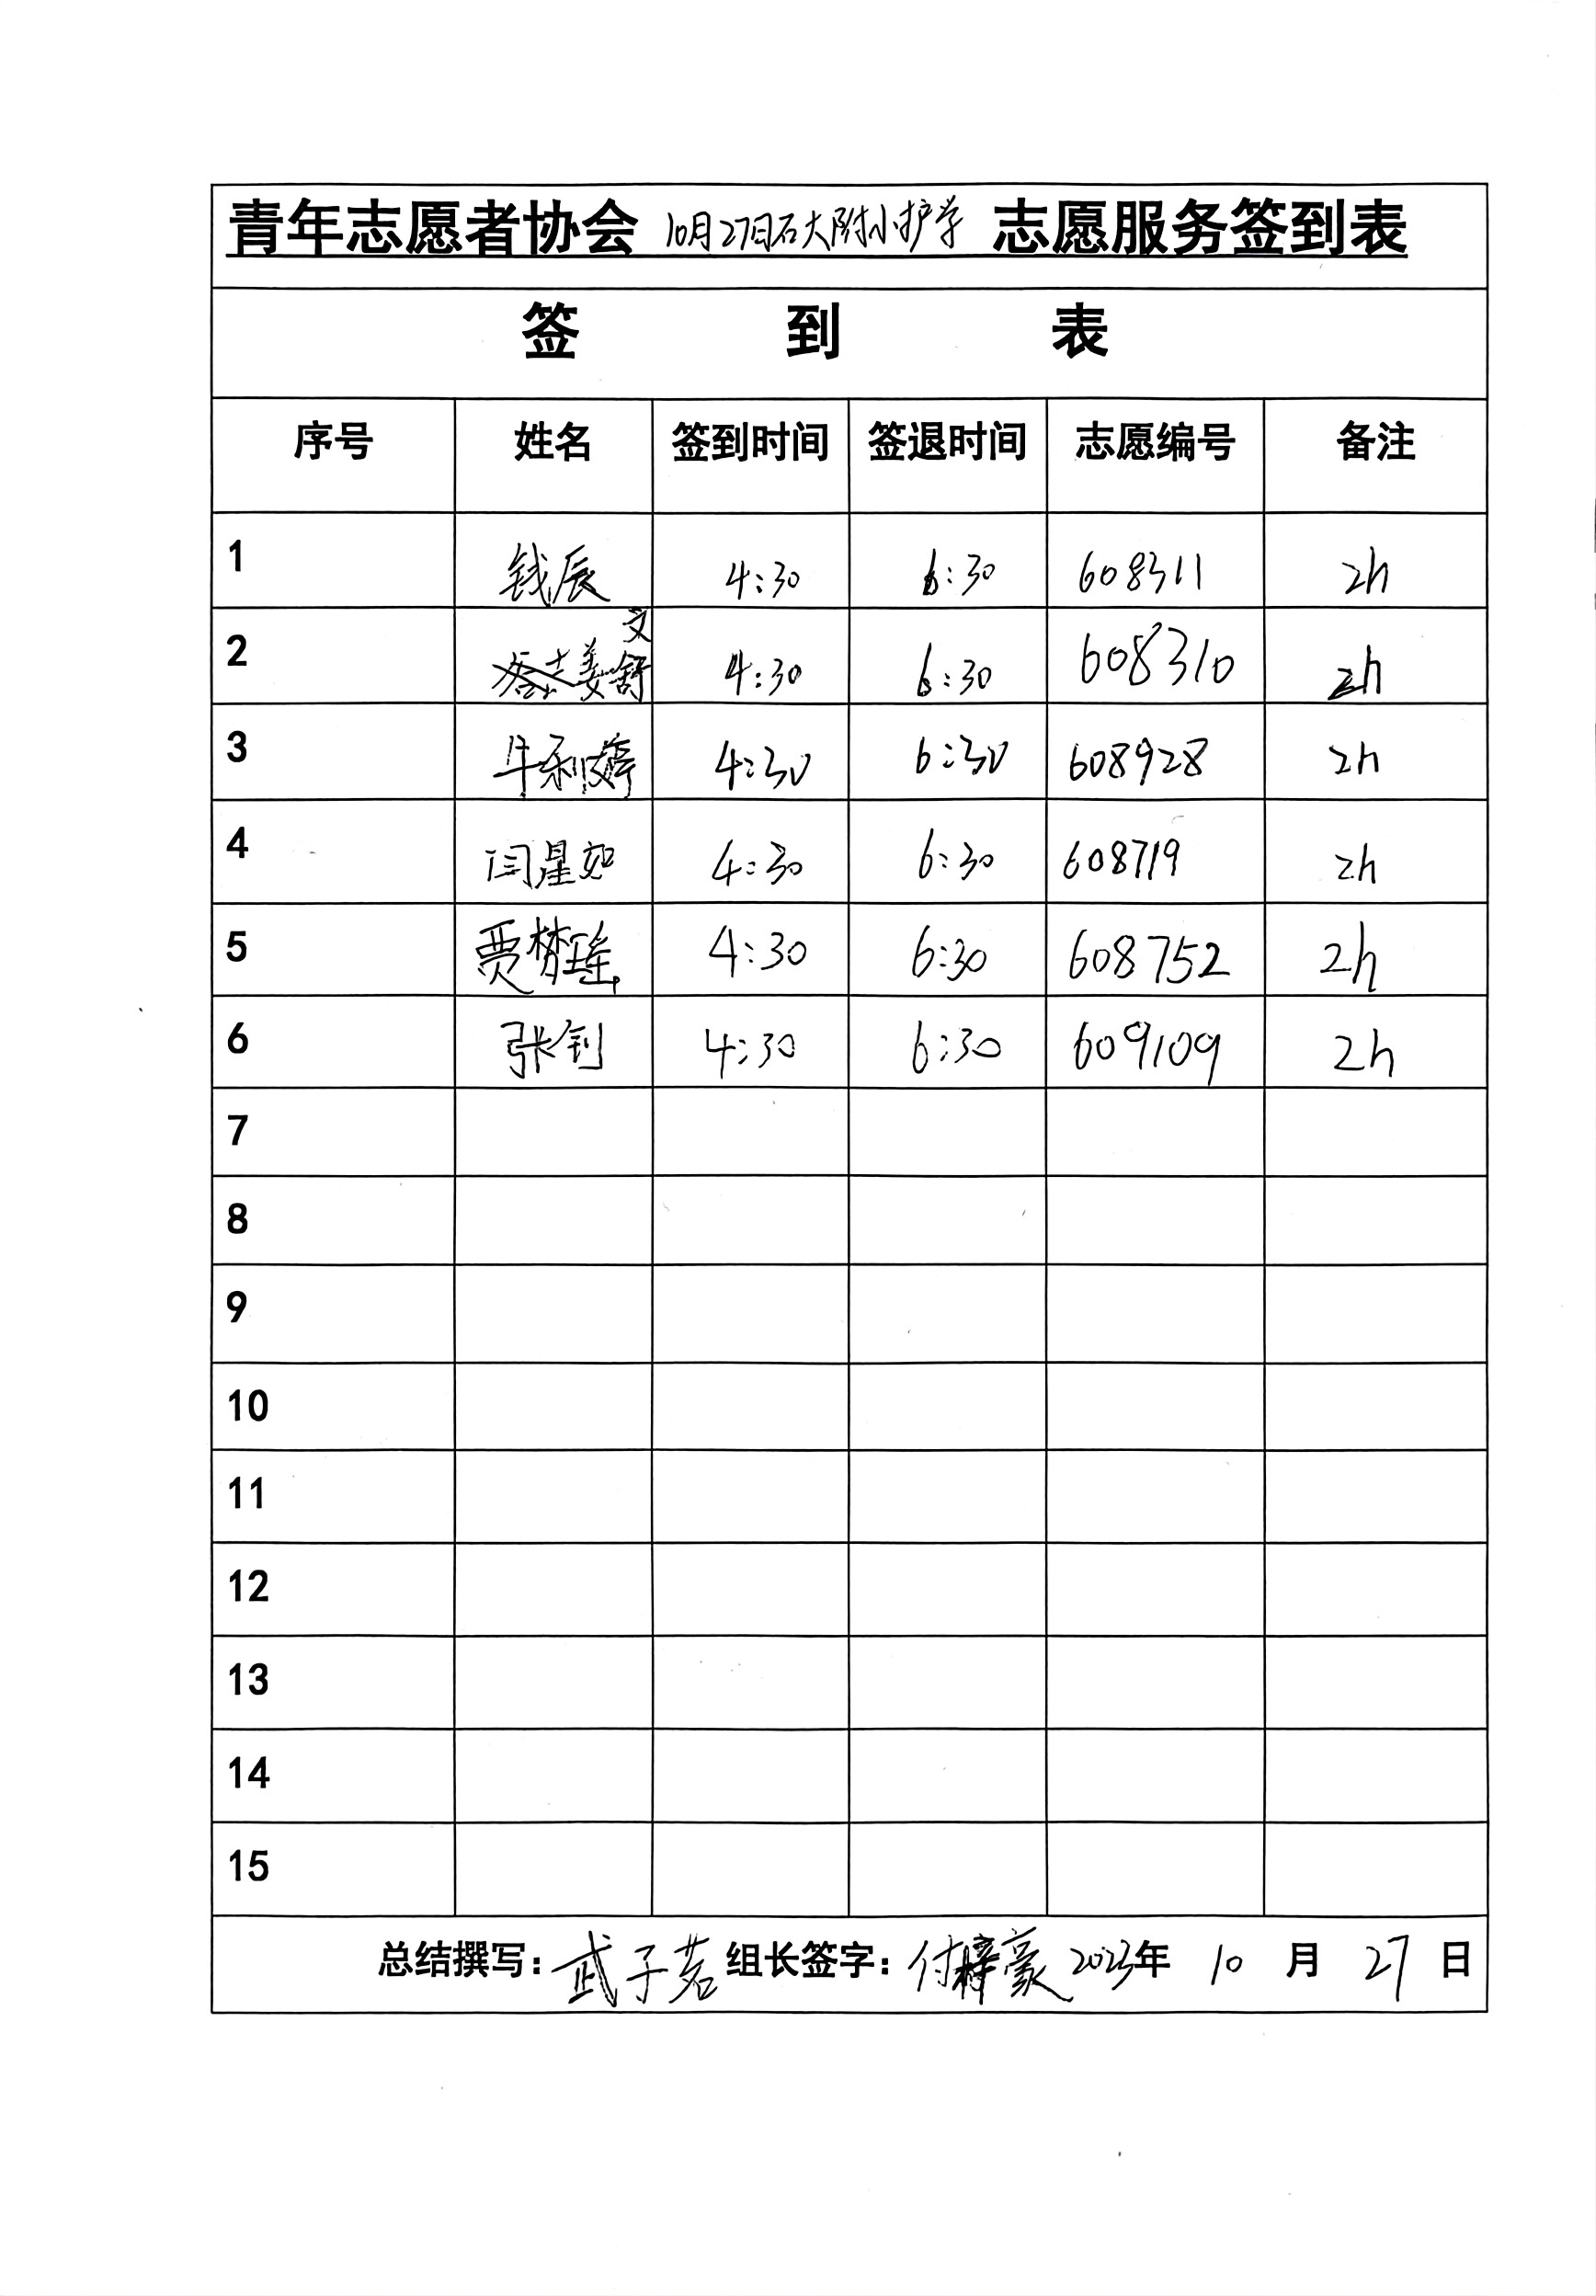 青年志愿者协会 10月27日石大附小护学 志愿服务签到表
签 到 表
序号 姓名 签到时间 签退时间 志愿编号 备注
1 钱辰 4:30 6:30 608311 2h
2 姜文舒 4:30 6:30 608310 2h
3 牛利婷 4:30 6:30 608928 2h
4 闫星如 4:30 6:30 608719 2h
5 贾梦瑶 4:30 6:30 608752 2h
6 张钊 4:30 6:30 609109 2h
7
8
9
10
11
12
13
14
15
总结撰写：武子茗 组长签字：付梓豪 2023年 10 月 27 日